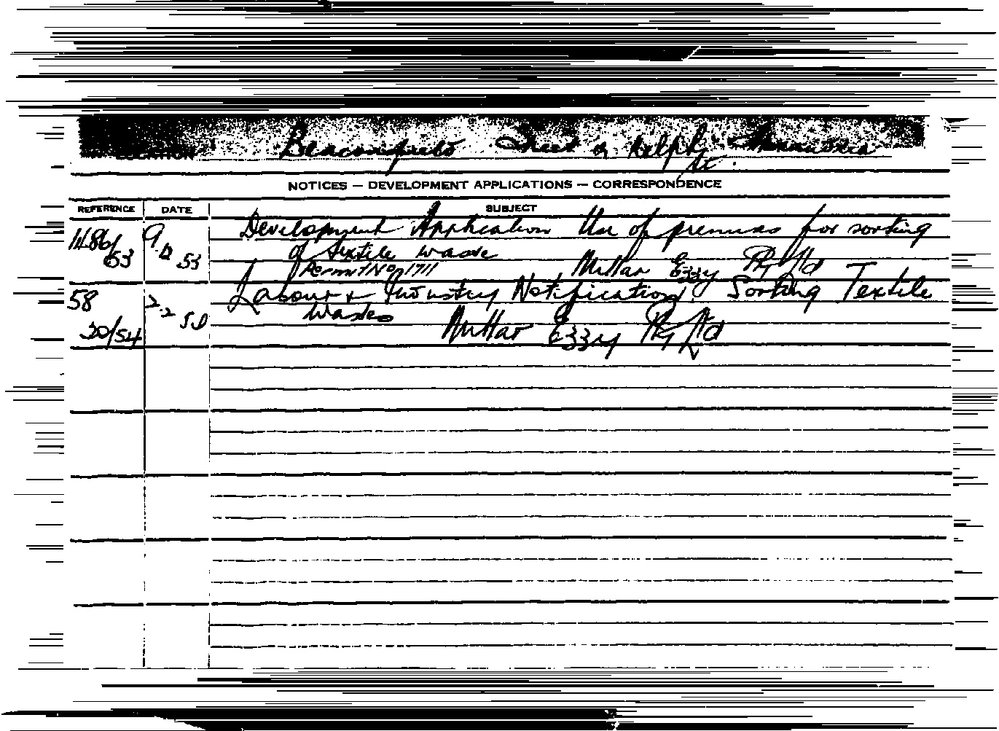 LOCATION Beaconsfield Street
St.
NOTICES — DEVELOPMENT APPLICATIONS — CORRESPONDENCE
REFERENCE DATE SUBJECT
1486/53 9.12.53 Development Application Use of premises for sorting
of textile waste Millar Ezzy Pty Ltd
Permit No 1711
58 Labour & Industry Notification Sorting Textile
30/54 2.2.50 Wastes Millar Ezzy Pty Ltd